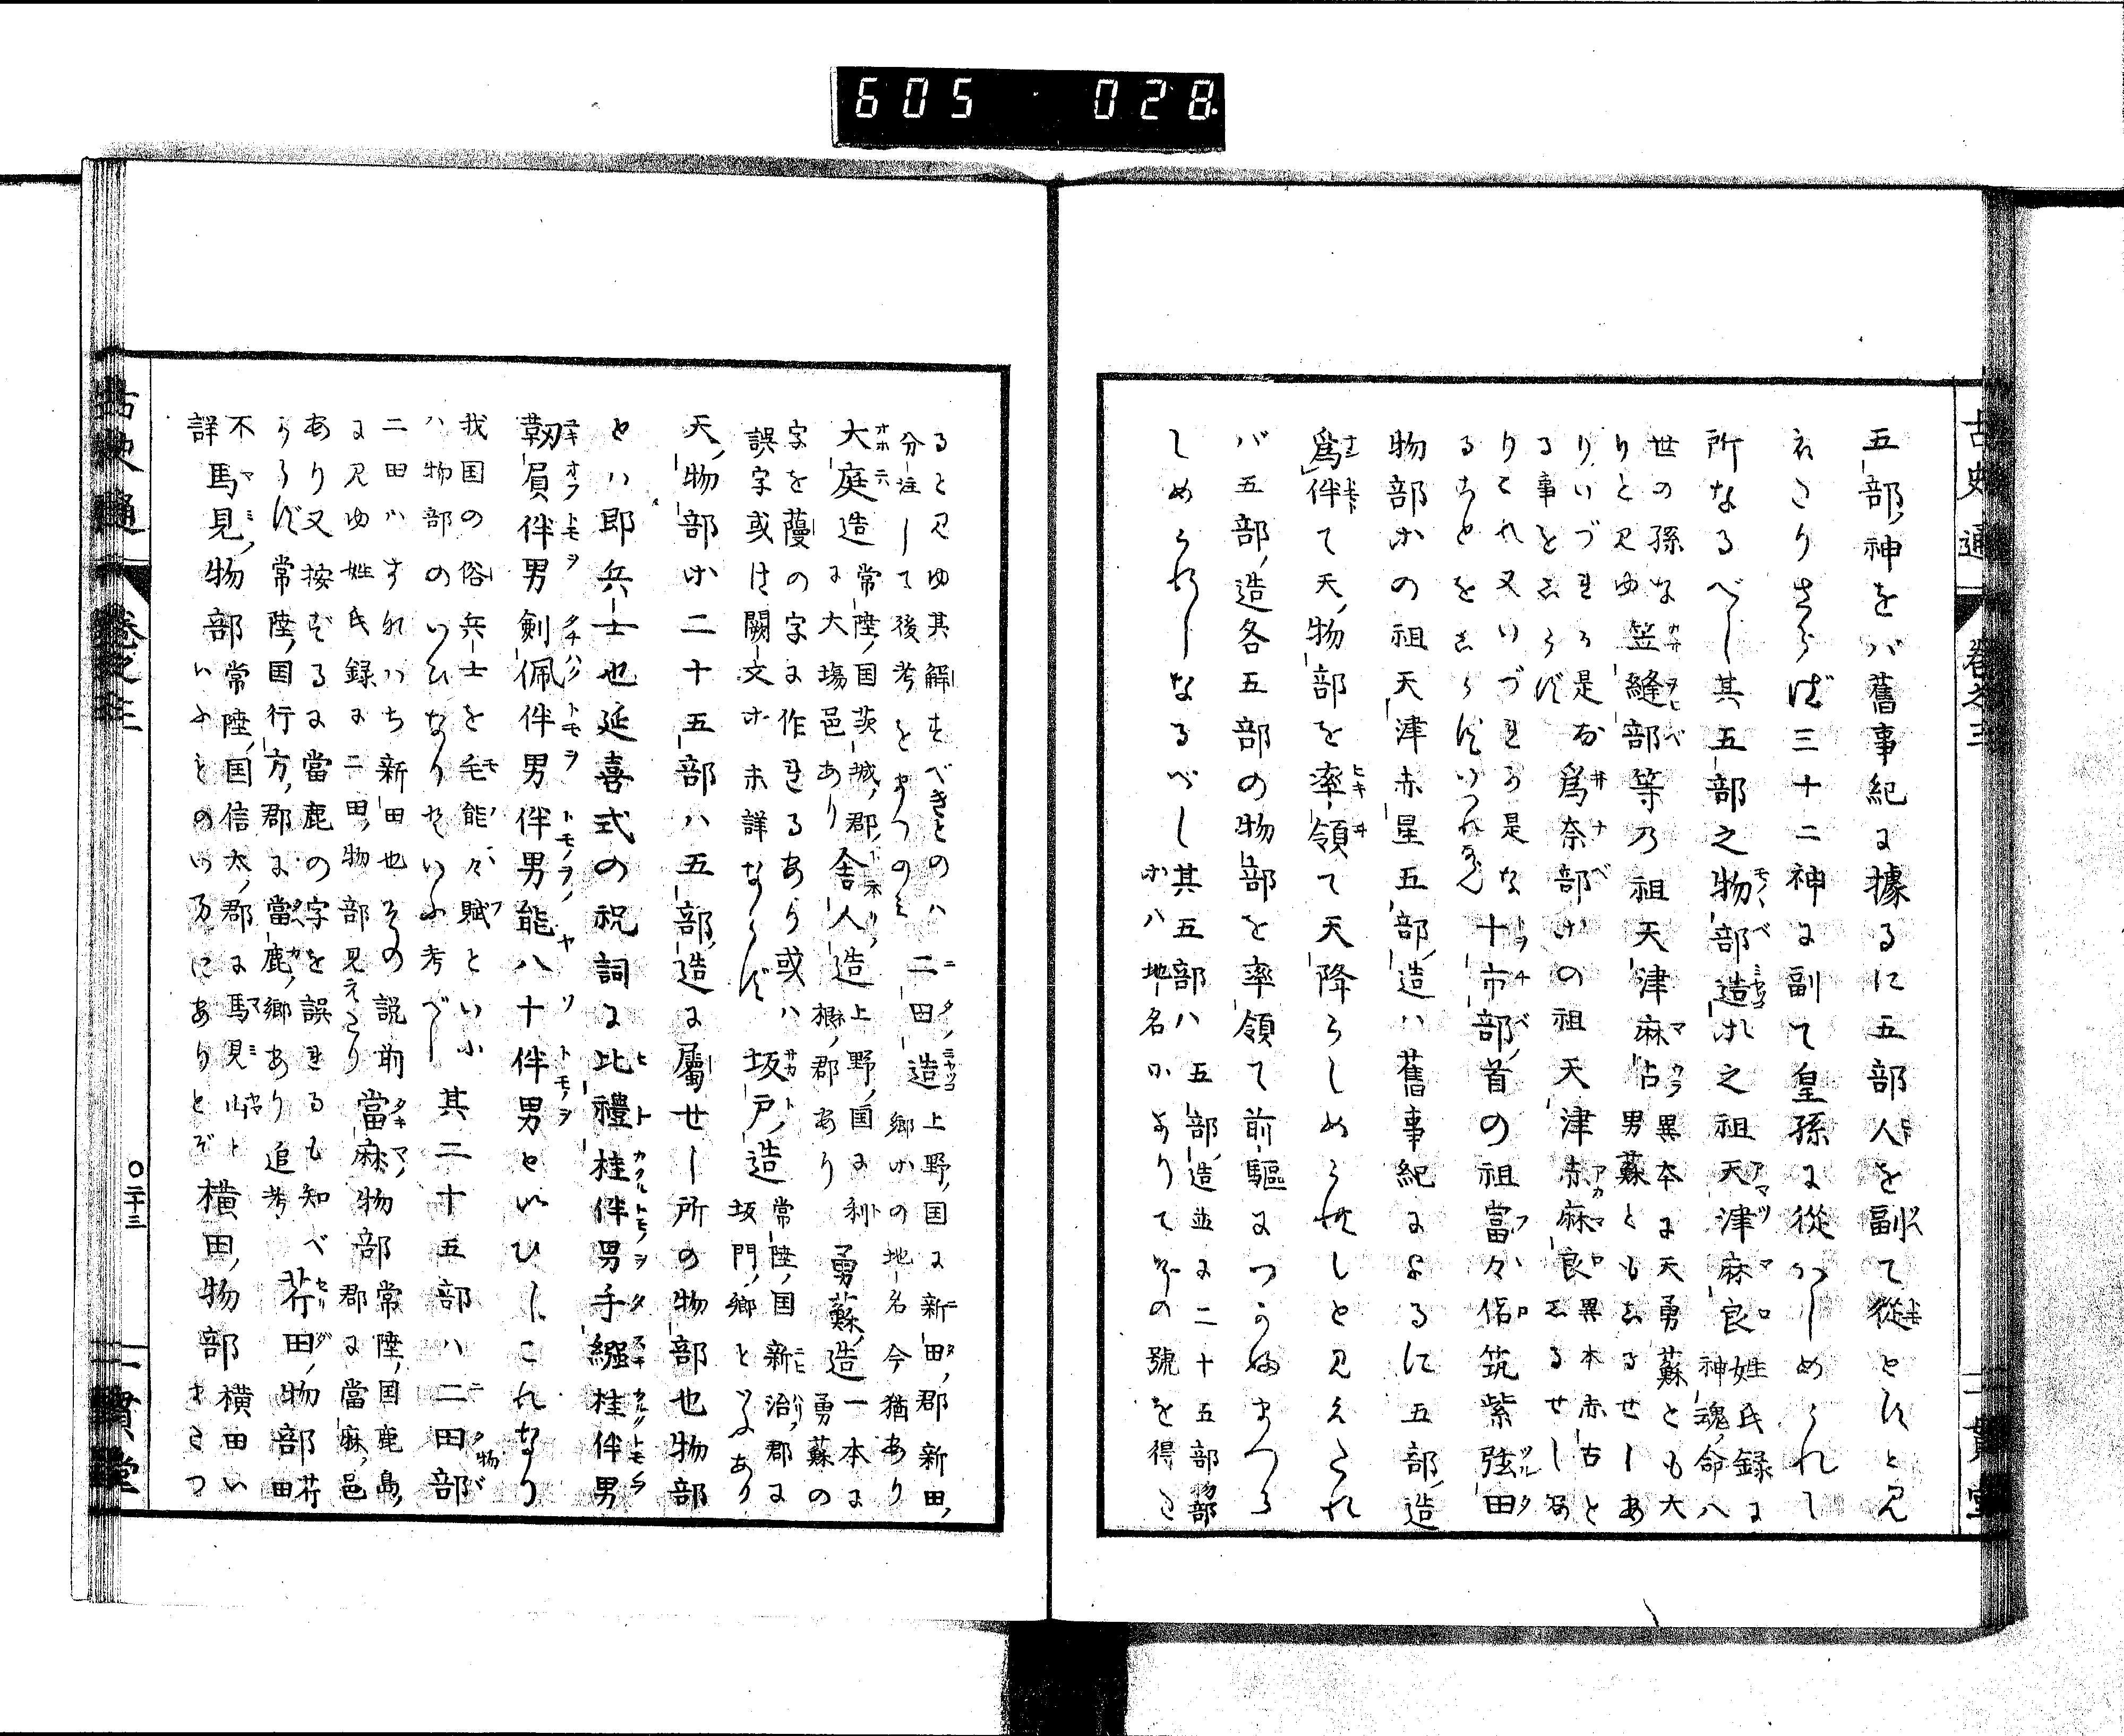 605 028
古史通
卷之三
二貫堂
五部神をバ舊事紀に據るに五部人を副て從とすと見
えたりさらば三十二神に副て皇孫に從つしめられて
所なるべし其五部之物部造れ之祖天津麻良
姓氏録に
神魂命八
世の孫な
りと見ゆ
笠縫部等乃祖天津麻占
異本に天勇蘇とも大
男蘇ともしるせしあ
りいづれか是
る事をしらず
爲奈部ホの祖天津赤麻良
異本赤占と
しるせしあ
りこれ又いづれか是な
る事をしらず
十市部首の祖富々侶筑紫弦田
物部ホの祖天津赤星五部造ハ舊事紀によるに五部造
爲伴て天物部を率領て天降らしめられしと見えたれ
バ五部造各五部の物部を率領て前驅につかふまつら
しめられしなるべし
其五部ハ五部造並に二十五部物部
ホハ地名ホありてその號を得た
ると見ゆ其解すべきとのハ
分注して後考をまつのミ
二田造
上野国に新田郡新田
郷ホの地名今猶あり
大庭造
常陸国茨城郡
に大場邑あり
舍人造
上野国に利
根郡あり
勇蘇造
一本に
勇蘇の
字を蘰の字に作れるあり或ハ
誤字或は闕文ホ未詳ならず
坂戸造
常陸国新治郡に
坂門郷といふあり
天物部ホ二十五部ハ五部造に屬せし所の物部也物部
とハ即兵士也延喜式の祝詞に比禮桂伴男手繦桂伴男
靱屓伴男劍佩伴男伴男能八十伴男といひしこれなり
我国の俗兵士を毛能々賦といふ
ハ物部のいひなりといふ考べし
其二十五部ハ二田部
二田ハすなハち新田也その説前
に見ゆ姓氏録に二田物部見えたり
當麻物部
常陸国鹿島
郡に當麻邑
あり又按ずるに當鹿の字を誤れるも知べ
からず常陸国行方郡に當鹿郷あり追考
芹田物部
芹
田
不
詳
馬見物部
常陸国信太郡に馬見山と
いふところのいまにありとぞ
横田物部
横田い
まさつ
古史通
卷之三
〇二十三
二貫堂